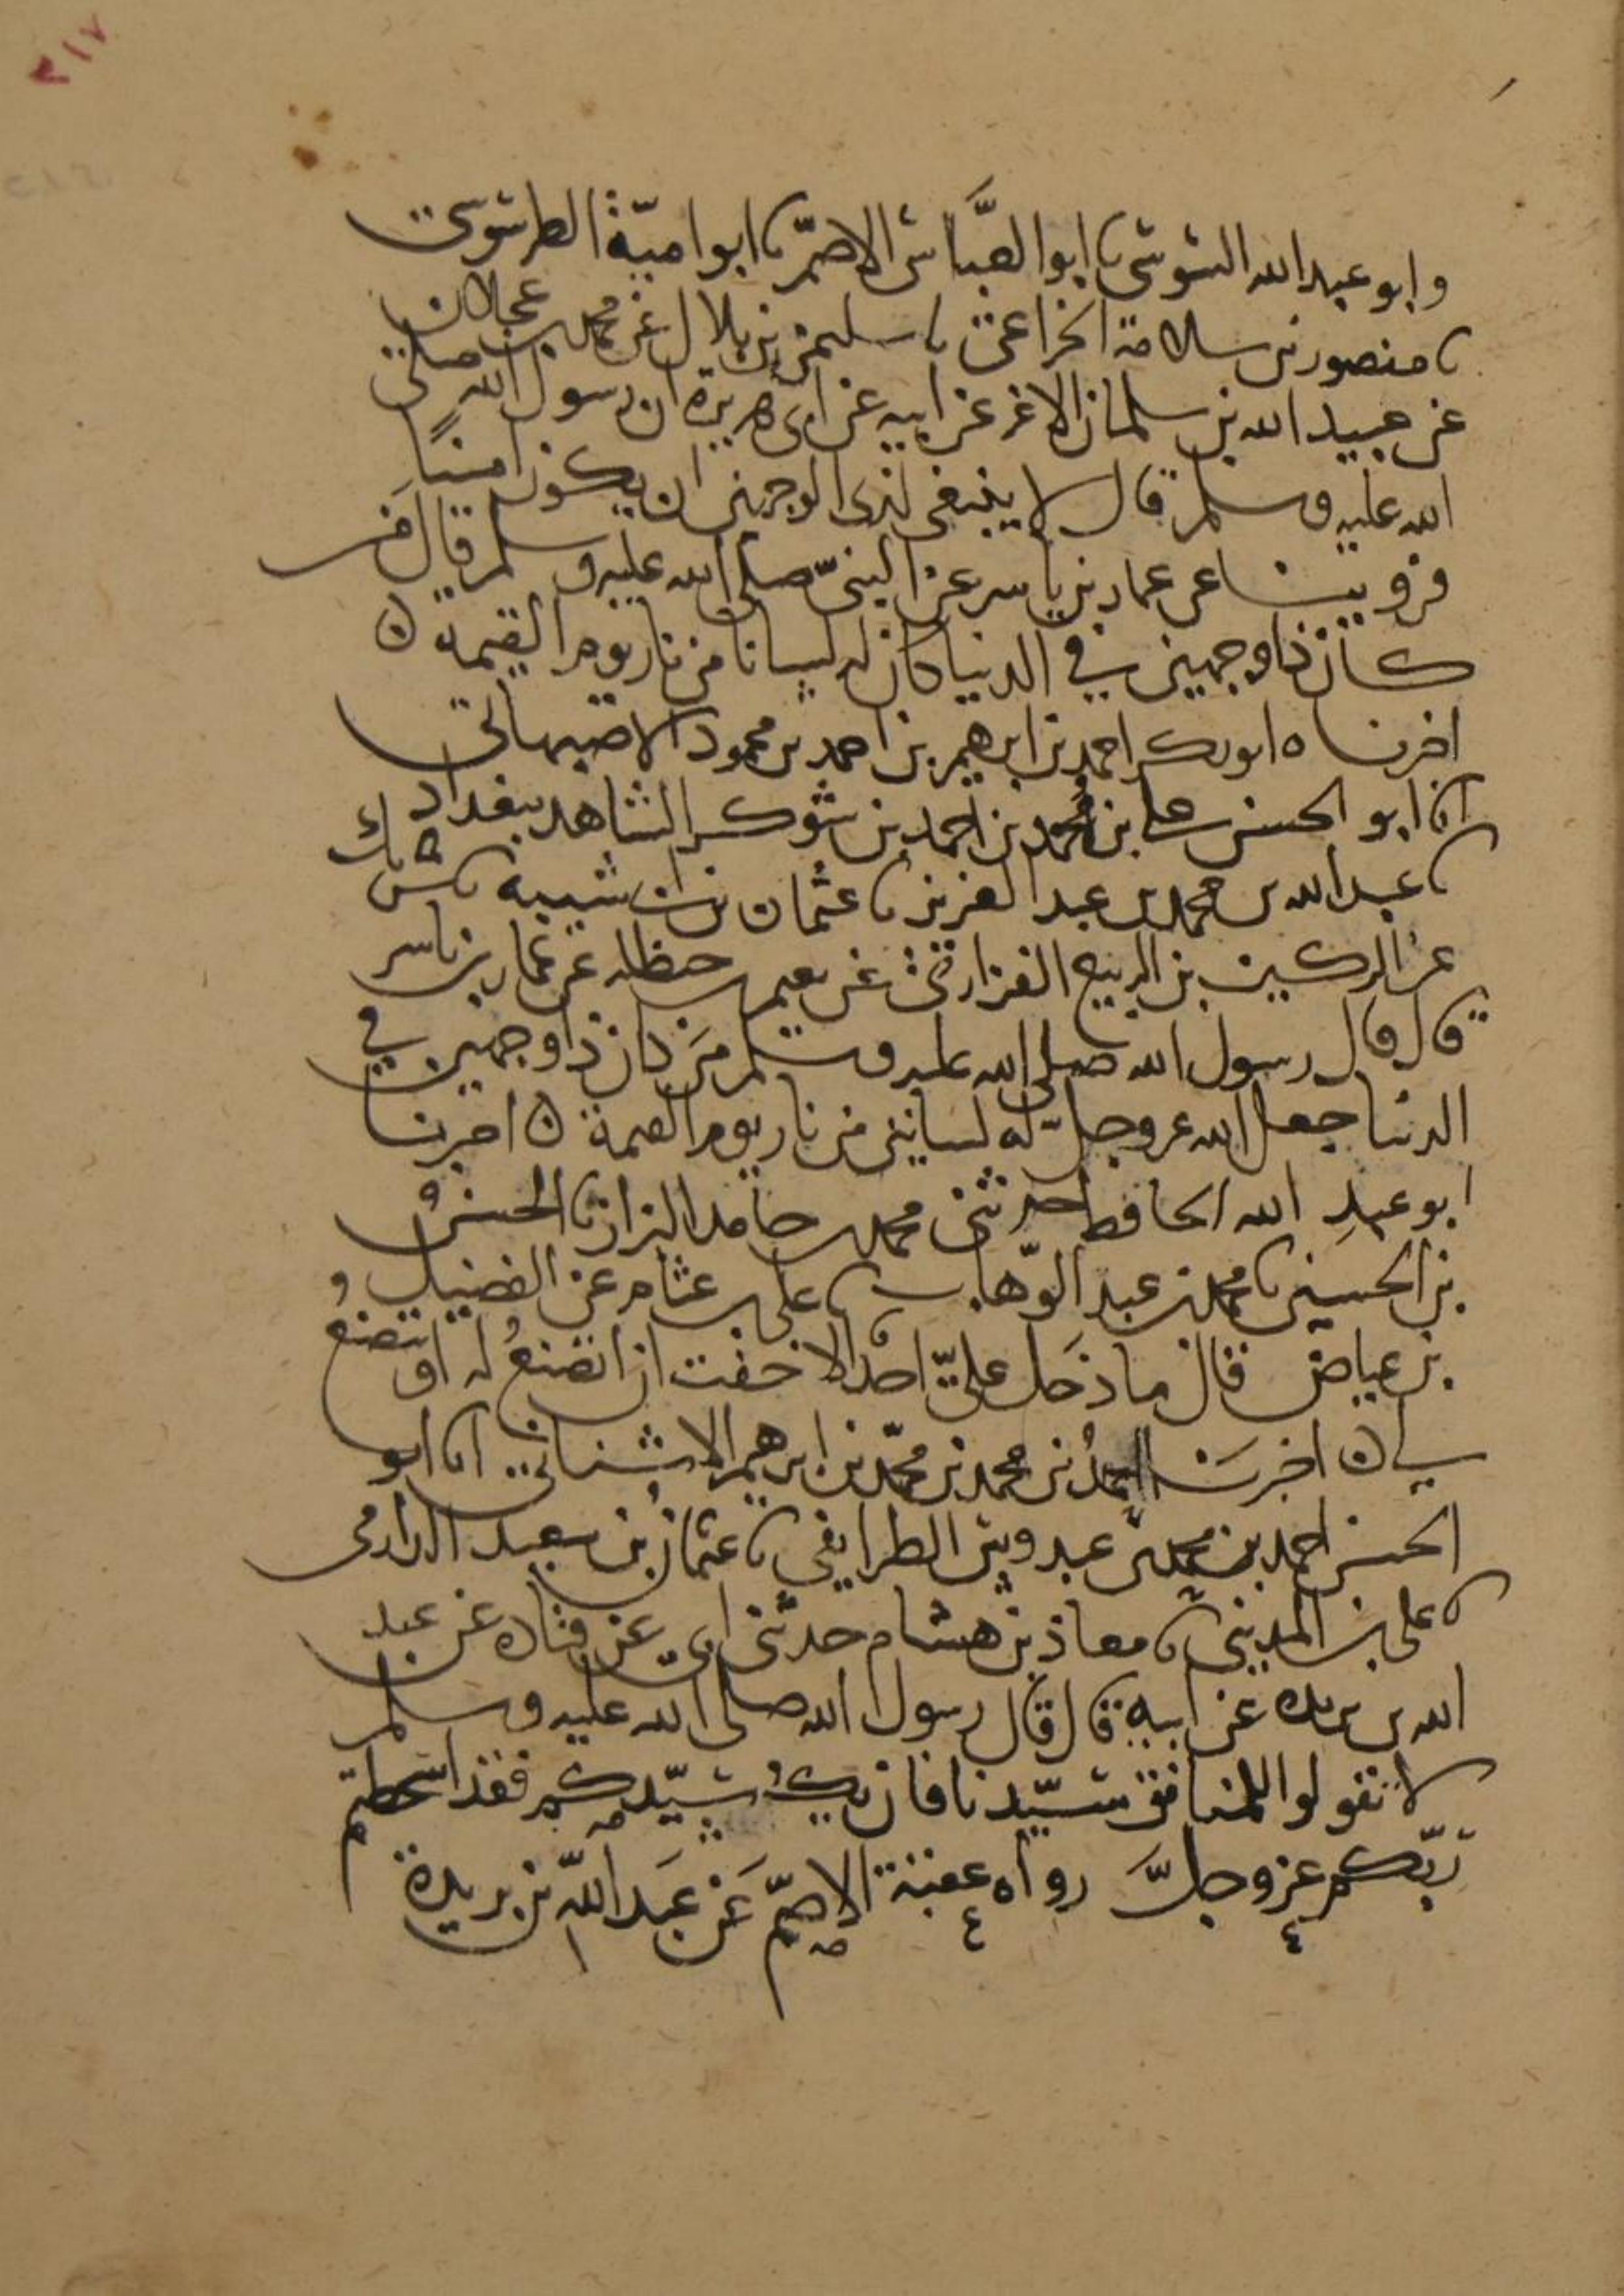 ٢١٧
وابو عبد الله السوسى نا ابو العباس الاصم نا ابو امية الطرسوسى
نا منصور بن سلامة الخزاعى نا سليمن بن بلال عن محمد بن عجلان
عن عبيد الله بن سلمان الاغر عن ابيه عن ابى هريرة ان رسول الله صلى
الله عليه وسلم قال لا ينبغى لذى الوجهين ان يكون امينًا
وروينا عن عمار بن ياسر عن النبىّ صلى الله عليه وسلم قال مَن
كان ذا وجهين في الدنيا كان له لسانا من نار يوم القيمة ه
اخبرناه ابو بكر احمد بن ابرهيم بن احمد بن محمود الاصبهانى
انا ابو الحسن على بن محمد بن احمد بن شوكر الشاهد ببغداد
نا عبد الله بن محمد بن عبد العزيز نا عثمان بن ابى شيبة نا شريك
عن الركين بن الربيع الفزارى عن نعيم بن حنظله عن عمار بن ياسر
قال قال رسول الله صلى الله عليه وسلم مَن كان ذا وجهين في
الدنيا جعل الله عز وجلّ له لسانين من نار يوم القيمة ه اخبرنا
ابو عبدِ الله الحافظ اخبرنى محمد بن حامد البزاز نا الحسنُ
بن الحسين نا محمد بن عبد الوهّاب نا على بن عثام عن الفضيل
بن عياض قال ما دَخل علىّ احد الا خفت ان اتصنعُ له او يتصنعُ
لى ه اخبرَنا احمدُ بن محمد بن محمّد بن ابرهيم الاشنانى انا ابو
الحسن احمد بن محمد بن عبدوس الطرايفى نا عثمانُ بن سعيد الدارمى
نا على بن المدينى نا معاذ بن هشام حدثنى ابى عن قتاده عن عبد
الله بن بريده عن ابيه قال قال رسول الله صلى الله عليه وسلم
لا تقولوا للمنافق سيّدنا فان يكُ سيّدكم فقد اسخطتم
ربّكم عز وجلَّ رواه عقبة الاصمّ عَن عَبد اللّه بن بريدة